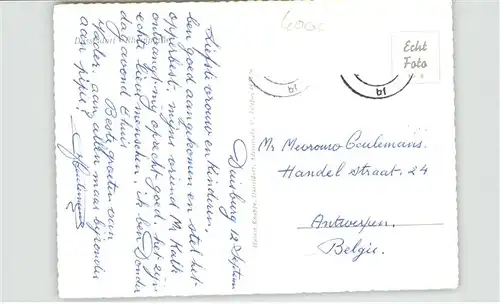 4000
Echt
Foto
19
19
Duisburg 12 Septem
Liefste vrouw en kinderen,
ben goed aangekomen en stel het
opperbest, mijn vriend M. Kalk
ontvangt mij opacht goed, het zijn
echte lieve mensen. Ik ben Donder
dag avond thuis
Beste groeten aan
Vader, aan allen maar byzonder
aan
Mr Mevrouw Ceulemans.
Handel straat. 24
Antwerpen.
Belgie.